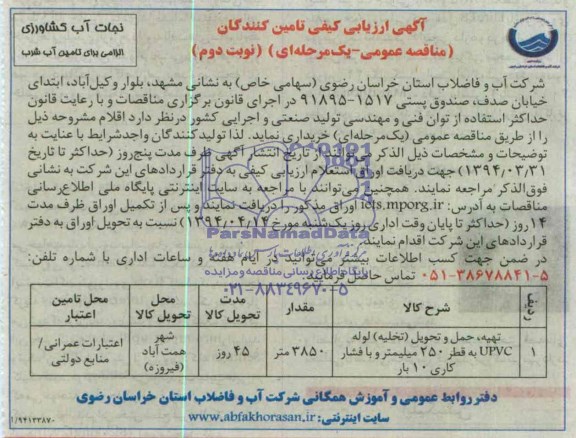 نجات آب کشاورزی
الزامی برای تامین آب شرب
آگهی ارزیابی کیفی تامین کنندگان
(مناقصه عمومی-یک‌مرحله‌ای) (نوبت دوم)
شرکت آب و فاضلاب استان خراسان رضوی (سهامی خاص) به نشانی مشهد، بلوار وکیل‌آباد، ابتدای
خیابان صدف، صندوق پستی ۱۵۱۷-۹۱۸۹۵ در اجرای قانون برگزاری مناقصات و با رعایت قانون
حداکثر استفاده از توان فنی و مهندسی تولید صنعتی و اجرایی کشور درنظر دارد اقلام مشروحه ذیل
را از طریق مناقصه عمومی (یک‌مرحله‌ای) خریداری نماید. لذا تولیدکنندگان واجدشرایط با عنایت به
توضیحات و مشخصات ذیل الذکر از تاریخ انتشار آگهی ظرف مدت پنج‌روز (حداکثر تا تاریخ
۱۳۹۴/۰۳/۳۱) جهت دریافت اوراق استعلام ارزیابی کیفی به دفتر قراردادهای این شرکت به نشانی
فوق‌الذکر مراجعه نمایند. همچنین می‌توانند با مراجعه به سایت اینترنتی پایگاه ملی اطلاع‌رسانی
مناقصات به آدرس: iets.mporg.ir اوراق مذکور را دریافت نمایند و پس از تکمیل اوراق ظرف مدت
۱۴ روز (حداکثر تا پایان وقت اداری روز یک‌شنبه مورخ ۱۳۹۴/۰۴/۱۴) نسبت به تحویل اوراق به دفتر
قراردادهای این شرکت اقدام نمایند.
در ضمن جهت کسب اطلاعات بیشتر می‌توانید در ایام هفته و ساعات اداری با شماره تلفن:
۰۵۱-۳۸۶۷۸۸۴۱-۵ تماس حاصل فرمایید.
ParsNamadData
پایگاه اطلاع رسانی مناقصه و مزایده
۰۲۱-۸۸۳۴۹۶۷۰-۵
ردیف | شرح کالا | مقدار | مدت تحویل کالا | محل تحویل کالا | محل تامین اعتبار
۱ | تهیه، حمل و تحویل (تخلیه) لوله UPVC به قطر ۲۵۰ میلیمتر و با فشار کاری ۱۰ بار | ۳۸۵۰ متر | ۴۵ روز | شهر همت آباد (فیروزه) | اعتبارات عمرانی/ منابع دولتی
دفتر روابط عمومی و آموزش همگانی شرکت آب و فاضلاب استان خراسان رضوی
سایت اینترنتی: www.abfakhorasan.ir
۹۴۱۳۳۸۷۰/ا